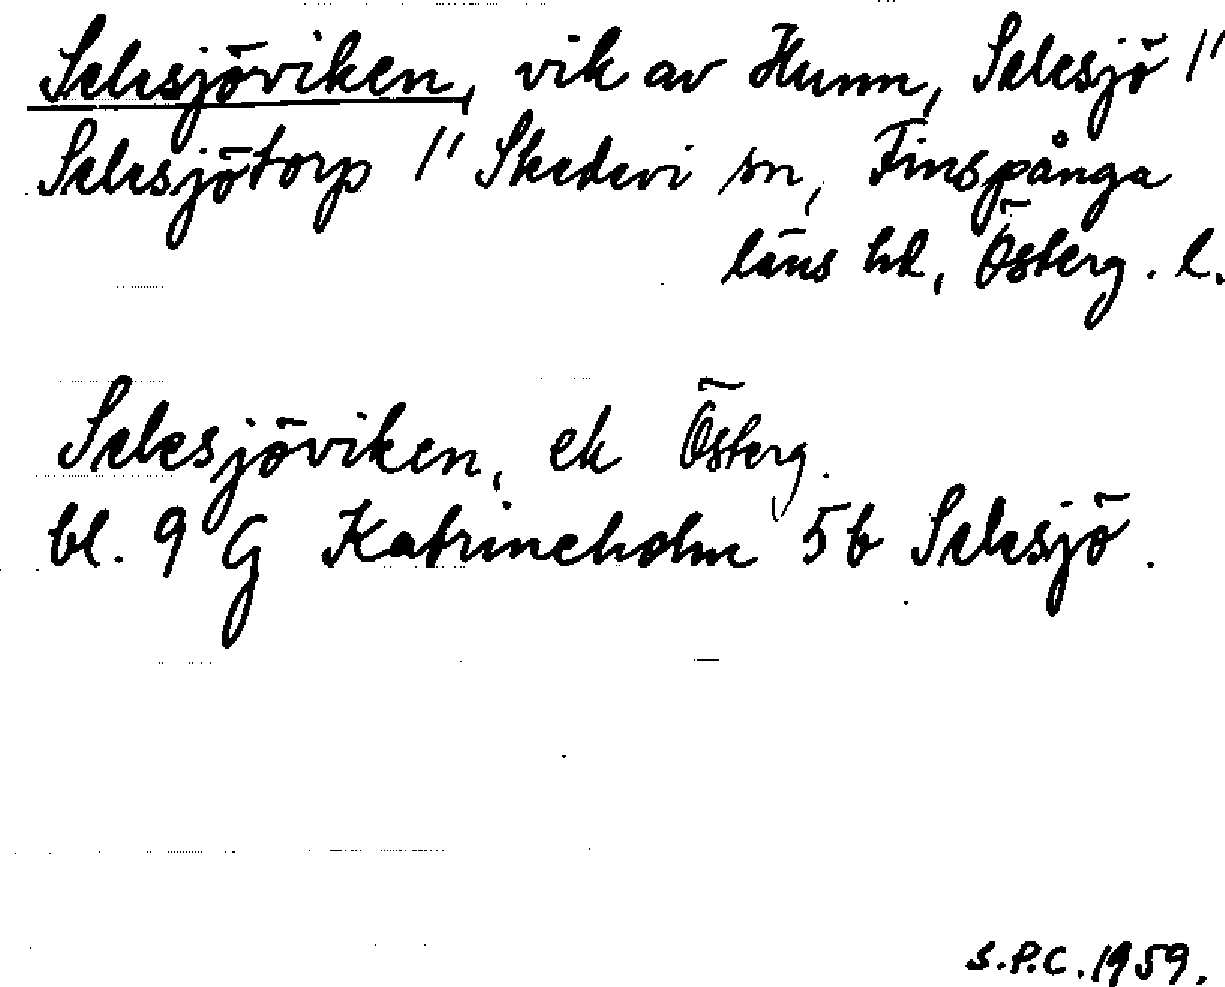 Selesjöviken, vik av Hunn, Selesjö 1/1
Selesjötorp 1/1 Skedevi sn, Finspånga
läns hd, Österg. l.
Selesjöviken, ek Österg.
bl. 9 G Katrineholm 5b Selesjö.
S.P.C. 1959.